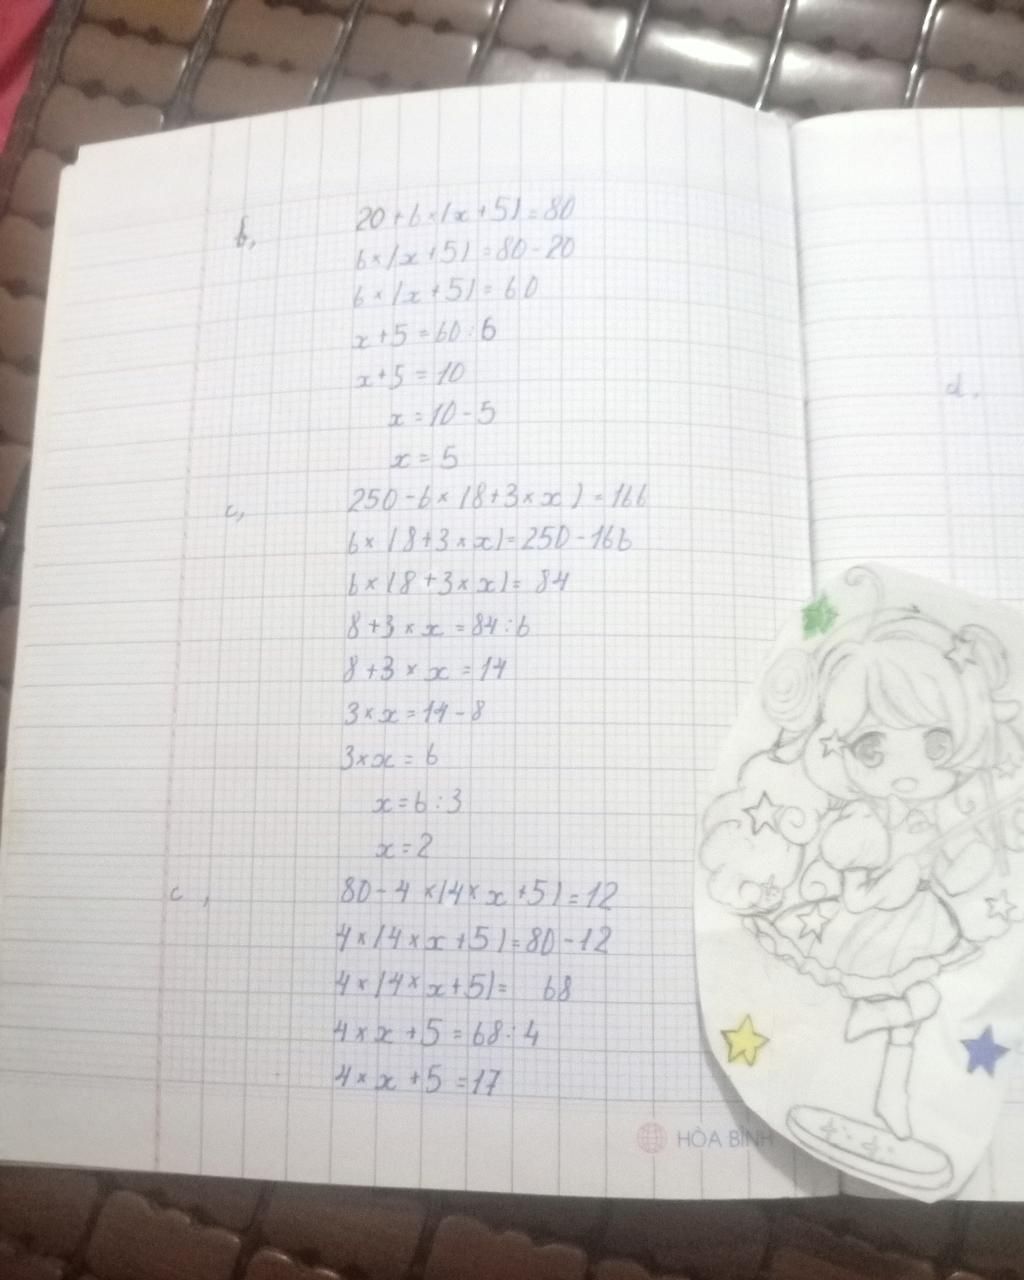 b, 20 + 6 × (x + 5) = 80
6 × (x + 5) = 80 - 20
6 × (x + 5) = 60
x + 5 = 60 : 6
x + 5 = 10
x = 10 - 5
x = 5
c, 250 - 6 × (8 + 3 × x) = 166
6 × (8 + 3 × x) = 250 - 166
6 × (8 + 3 × x) = 84
8 + 3 × x = 84 : 6
8 + 3 × x = 14
3 × x = 14 - 8
3 × x = 6
x = 6 : 3
x = 2
c, 80 - 4 × (4 × x + 5) = 12
4 × (4 × x + 5) = 80 - 12
4 × (4 × x + 5) = 68
4 × x + 5 = 68 : 4
4 × x + 5 = 17
HÒA BÌNH
d.